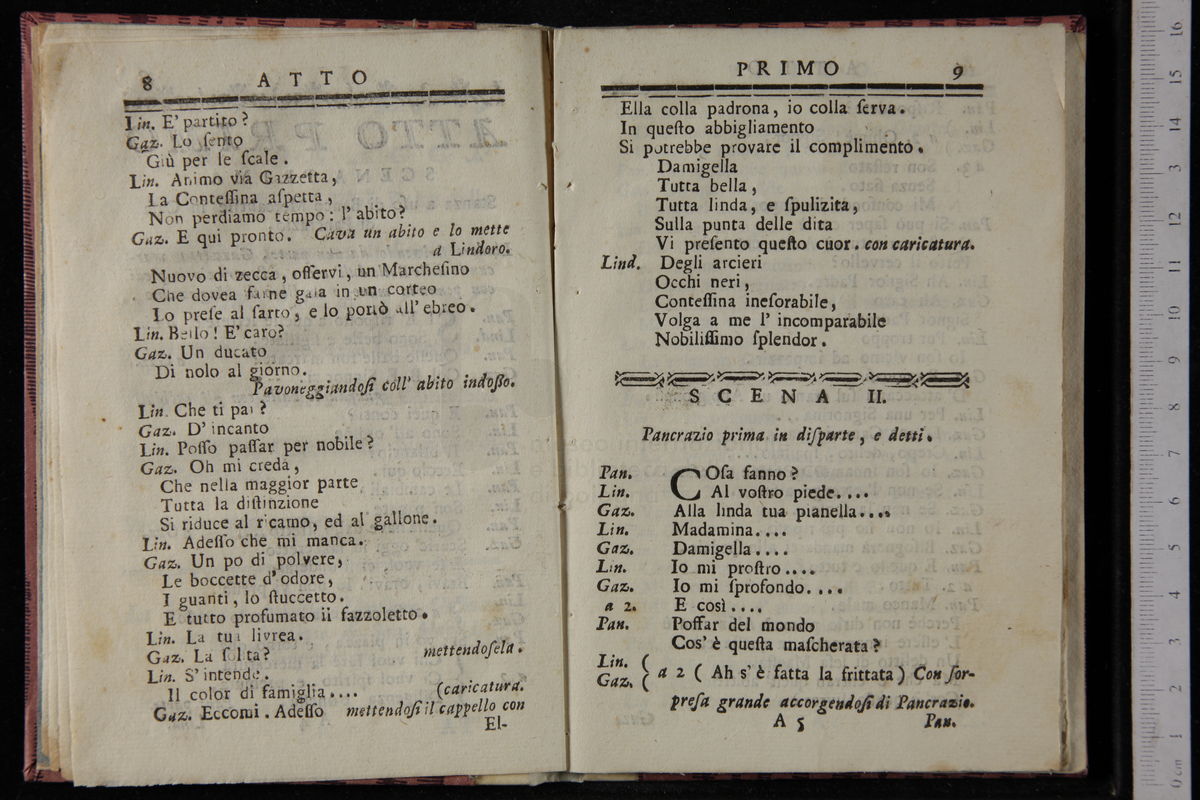 8 ATTO
Lin. E' partito?
Gaz. Lo ſento
Giù per le ſcale.
Lin. Animo via Gazzetta,
La Conteſſina aſpetta,
Non perdiamo tempo: l' abito?
Gaz. E qui pronto. Cava un abito e lo mette
a Lindoro.
Nuovo di zecca, oſſervi, un Marcheſino
Che dovea farne gala in un corteo
Lo preſe al ſarto, e lo portò all' ebreo.
Lin. Bello! E' caro?
Gaz. Un ducato
Di nolo al giorno.
Pavoneggiandoſi coll' abito indoſſo.
Lin. Che ti par?
Gaz. D' incanto
Lin. Poſſo paſſar per nobile?
Gaz. Oh mi creda,
Che nella maggior parte
Tutta la diſtinzione
Si riduce al ricamo, ed al gallone.
Lin. Adeſſo che mi manca.
Gaz. Un po di polvere,
Le boccette d' odore,
I guanti, lo ſtuccetto.
E tutto profumato il fazzoletto.
Lin. La tua livrea.
Gaz. La ſolita? mettendoſela.
Lin. S' intende.
Il color di famiglia.... (caricatura.
Gaz. Eccomi. Adeſſo mettendoſi il cappello con
El-
PRIMO 9
Ella colla padrona, io colla ſerva.
In queſto abbigliamento
Si potrebbe provare il complimento.
Damigella
Tutta bella,
Tutta linda, e ſpulizita,
Sulla punta delle dita
Vi preſento queſto cuor. con caricatura.
Lind. Degli arcieri
Occhi neri,
Conteſſina ineſorabile,
Volga a me l' incomparabile
Nobiliſſimo ſplendor.
SCENA II.
Pancrazio prima in diſparte, e detti.
Pan. COſa fanno?
Lin. Al voſtro piede....
Gaz. Alla linda tua pianella....
Lin. Madamina....
Gaz. Damigella....
Lin. Io mi proſtro....
Gaz. Io mi ſprofondo....
a 2. E così....
Pan. Poffar del mondo
Cos' è queſta maſcherata?
Lin. Gaz. ( a 2 ( Ah s' è fatta la frittata) Con ſor-
preſa grande accorgendoſi di Pancrazio.
A 5 Pan.